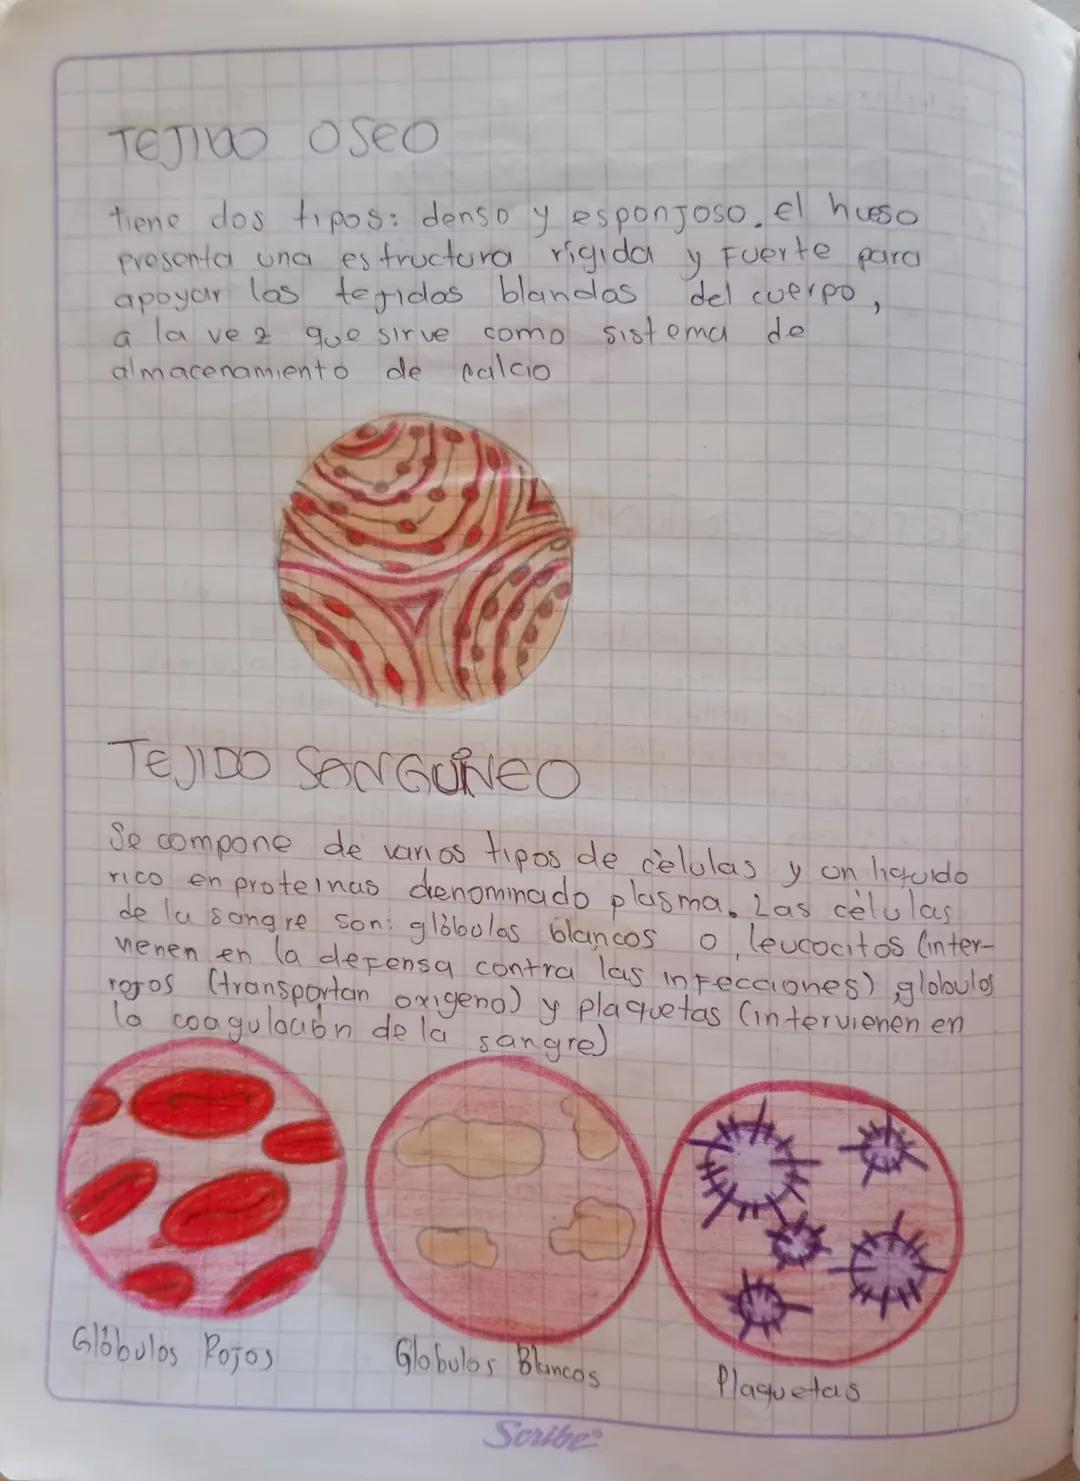 TEJIDO OSEO
tiene dos tipos: denso y esponjoso. el hueso
presenta una estructura rígida y Fuerte para
apoyar los tejidos blandos del cuerpo,
a la vez que sirve como sistema de
almacenamiento de calcio
TEJIDO SANGUÍNEO
Se compone de varios tipos de células y un liquido
rico en proteinas denominado plasma. Las células
de la sangre son: glóbulos blancos o leucocitos (inter-
vienen en la defensa contra las infecciones) globulos
rojos (transportan oxigeno) y plaquetas (intervienen en
la coagulación de la sangre)
Glóbulos Rojos
Globulos Blancos
Plaquetas
Scribe